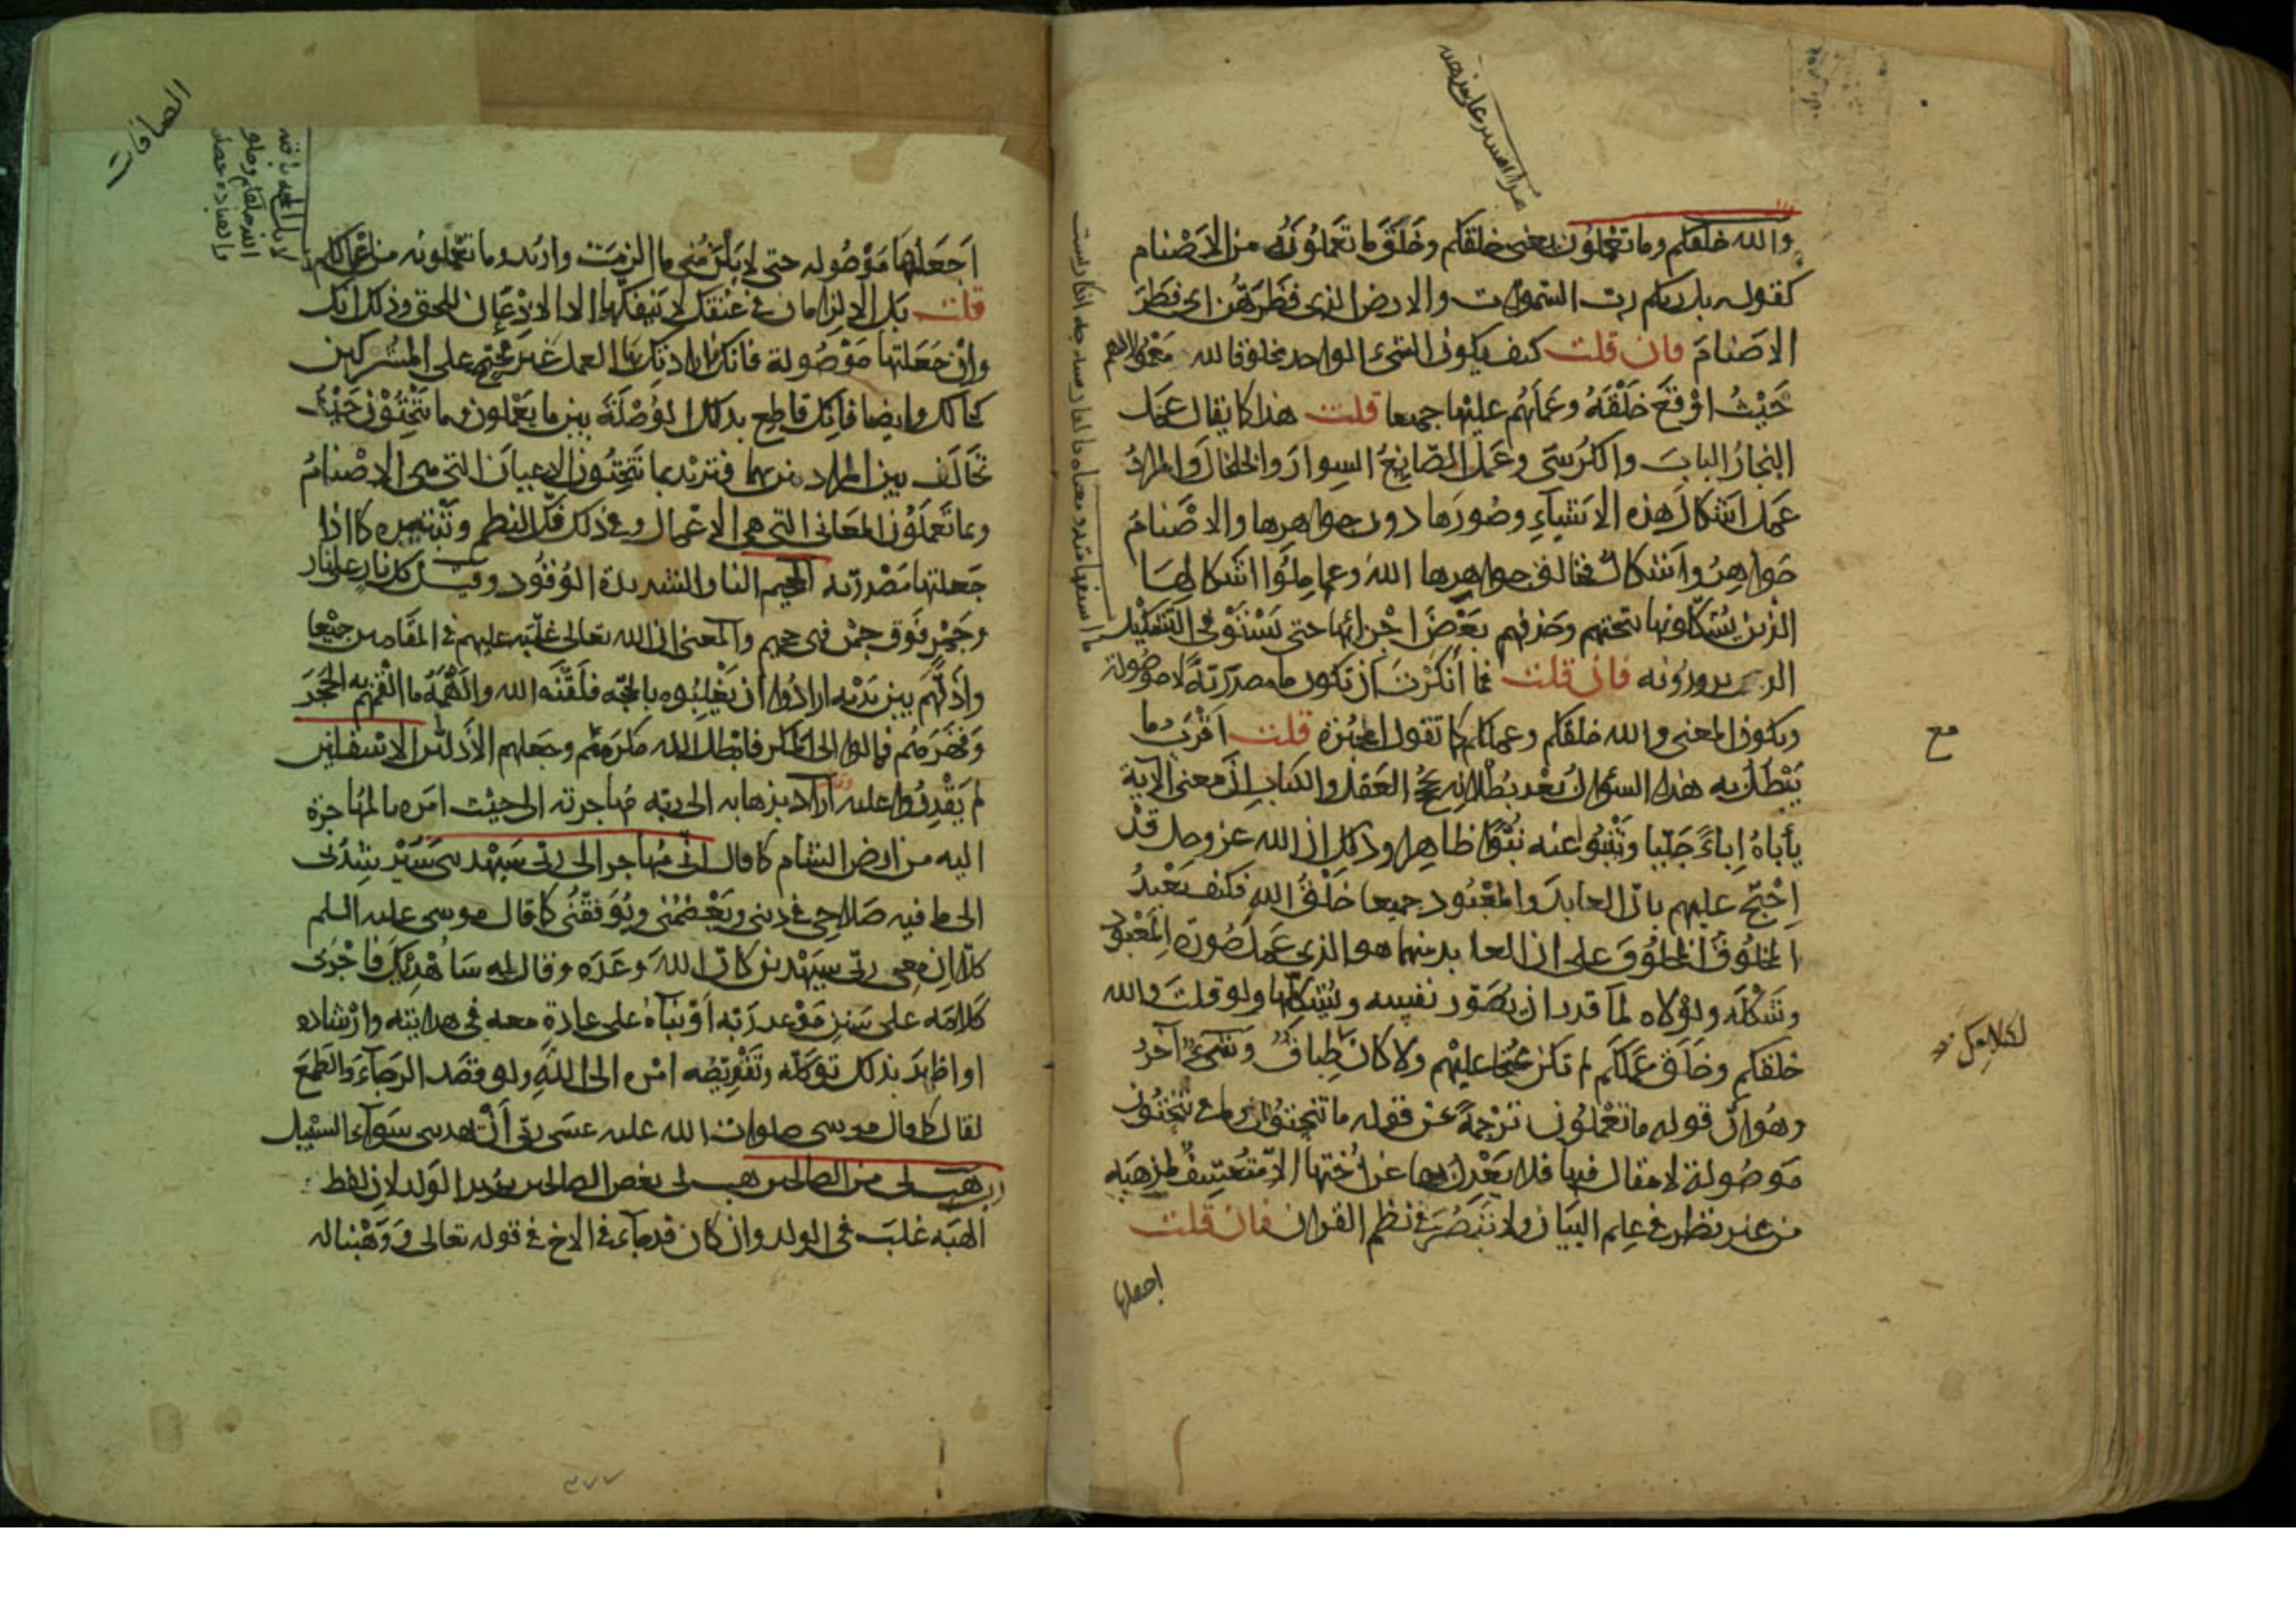 والله خلقكم وما تعملون يعني خلقكم وخلق ما تعملونه من الاصنام
كقوله بل ربكم رب السموات والارض الذي فطرهن اى فطر
الاصنام فان قلت كيف يكون الشيء الواحد مخلوقا لله معمولا لهم
حيث اوقع خلقه وعملهم عليها جميعا قلت هذا كما يقال عمل
النجار الباب والكرسي وعمل الصانع السوار والخلخال والمراد
عمل اشكال هذه الاشياء وصورها دون جواهرها والاصنام
جواهر واشكال فخالق جواهرها الله وعاملوا اشكالها
الذين يشكلونها بنحتهم وحذفهم بعض اجزائها حتى يستوي التشكيل
الذي يريدونه فان قلت فما انكرت ان تكون ما مصدرية لا موصولة
ويكون المعنى والله خلقكم وعملكم كما تقول المجبرة قلت اقرب ما
يبطل به هذا السؤال بعد بطلانه بحجج العقل والكتاب ان معنى الآية
يأباه إباءً جليا وتنبو عنه نبوا ظاهرا وذلك ان الله عز وجل قد
احتج عليهم بان العابد والمعبود جميعا خلق الله فكيف يعبد
المخلوق المخلوق على ان العابد منهما هو الذي عمل صورة المعبود
وشكله ولولاه لما قدر ان يصور نفسه ويشكلها ولو قلت والله
خلقكم وخلق عملكم لم تكن محتجا عليهم ولا كان طباق وشيء آخر
وهو ان قوله ما تعملون ترجمة عن قوله ما تنحتون وما في تنحتون
موصولة لا مقال فيها فلا يعدل بها عن اختها الا متعسف لمذهبه
من غير نظر في علم البيان ولا تبصر في نظم القران فان قلت
اجعلها
مع
الصافات
اجعلها موصوله حتى لا يلزمني ما الزمت واريد وما تعملونه من اعمالكم
قلت بل الالزامان في عنقك لا يفكهما الا الاذعان للحق وذلك انك
وان جعلتها موصولة فانك في ارادتك بها العمل غير محتج على المشركين
كحالك وايضا فانك قاطع بذلك الوصلة بين ما يعملون وما تنحتون حيث
تخالف بين المراد منهما فتريد بما تنحتون الاعيان التي هي الاصنام
وبما تعملون المعاني التي هي الاعمال وفي ذلك فك النظم وتبتيره كما اذا
جعلتها مصدرية الجحيم النار الشديدة الوقود وقيل كل نار على نار
وجمر فوق جمر فهي جحيم والمعنى ان الله تعالى غلبه عليهم في المقامين جميعا
واذلهم بين يديه ارادوا ان يغلبوه بالحجه فلقنه الله والهمه ما القمهم به الحجر
وقهرهم فمالوا الى المكر فابطل الله مكرهم وجعلهم الاذلين الاسفلين
لم يقدروا عليه اراد بذهابه الى ربه مهاجرته الى حيث امره بالمهاجرة
اليه من ارض الشام كما قال انى مهاجر الى ربى سيهدين سيرشدنى
الى ما فيه صلاحي في ديني ويعصمني ويوفقني كما قال موسى عليه السلم
كلا ان معي ربي سيهدين كان الله وعده وقال له سأهديك فاجرى
كلامه على سنن موعد ربه او بناه على عادة معه في هدايته وارشاده
او اظهر بذلك توكله وتفويضه امره الى الله ولو قصد الرجاء والطمع
لقال كما قال موسى صلوات الله عليه عسى ربى أن يهديني سواء السبيل
رب هب لى من الصالحين هب لى بعض الصالحين يريد الولد لان لفظ
الهبه غلب في الولد وان كان قد جاء في الاخ في قوله تعالى ووهبنا له
٣٧٧